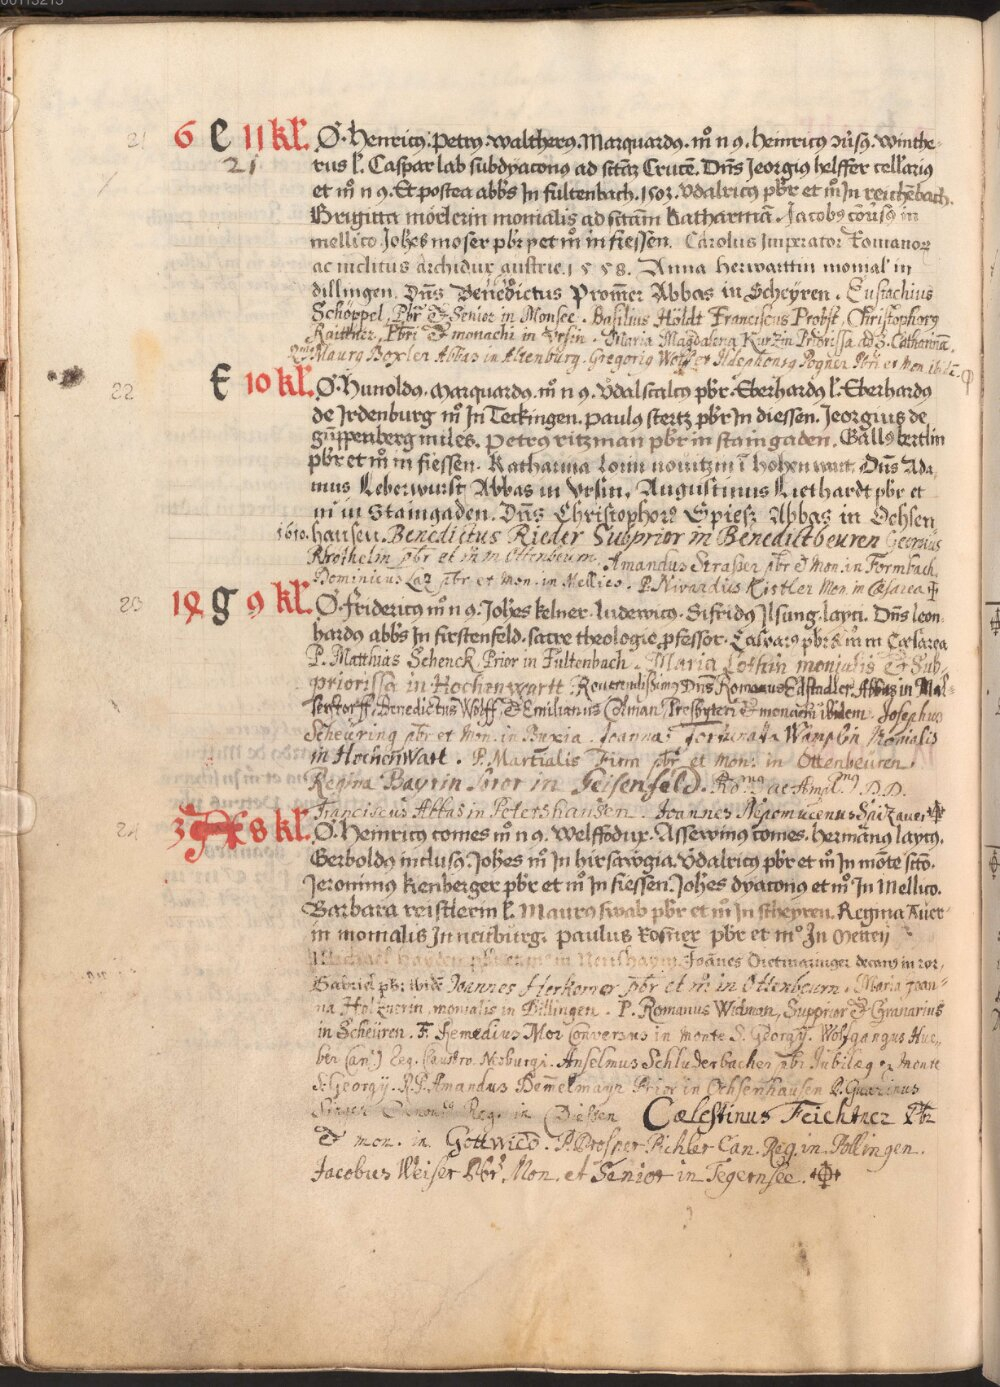 21 6 e 11 kl. O. Henricꝯ. Petrꝯ. Waltherꝯ. Marquardꝯ. m̊ n 9. Heinricꝯ Winthe-
21 rus l. Caspar lab subdyaconꝯ ad sctā Crucē. Dn̄s Jeorgiꝯ helffer cellariꝯ
et m̊ n 9. Et postea abb̄s In fultenbach. 1503. Vdalricꝯ pb̄r et m̊ In reichēbach.
Brigitta möclerin monialis ad sctām Katharinā. Jacobꝯ in
mellico. Joh̄es moser pb̄r et m̊ in fiessen. Carolus Imperator Romanoꝝ
ac inclitus Archidux austrie. 1558. Anna herwartin monial' in
dillingen. Dn̄s Benedictus Prom̄er Abbas in Scheyren. Eustachius
Schöppel, Pbr̄ & Senior in Monsee. Basilius Höldt Franciscus Probst, Christophorꝯ
Raittner, Pbri & monachi in Vrsin. Maria Magdalena Kurzin Priorissa ad S. Catharinā.
Maurꝯ Boxler Abbas in Altenburg. Gregoriꝯ Ildephonsꝯ Pogner Pbr̄i et Mon. ibid.
22 f 10 kl. O. Hunoldꝯ. Marquardꝯ. m̊ n 9. Vdalscalcꝯ pb̄r. Eberhardꝯ l. Eberhardꝯ
de Irdenburg m̊ In Teckingen. Paulꝯ stertz pb̄r In diessen. Jeorgius de
gūppenberg miles. Petrꝯ ritzman pb̄r in staingaden. Gallꝯ bertlin
pb̄r et m̊ in fiessen. Katharina novitzin ī hohenwart. Dn̄s Ada
mus Leberwurst Abbas in Vrsin. Augustinus Liethardt pb̄r et
m̊ in Staingaden. Dn̄s Christophorꝯ Spiesz Abbas in Ochsen
1610. hausen. Benedictus Rieder Subprior in Benedictbeuren Georgius
Rhothelin pbr̄ et m̊ in Ottenbeurn. Amandus Strasser pbr̄ & Mon. in Formbach.
Dominicus Laz pbr̄ et Mon. in Mellico. P. Nivardus Kistler Mon. in Cæsarea
23 19 g 9 kl. O. Fridericꝯ m̊ n 9. Joh̄es kelner. Ludewicꝯ. Sifridꝯ Ilsung. layci. Dn̄s leon-
hardꝯ abb̄s In firstenfeld. sacre theologie p̄fessor. Casparꝯ pb̄r & m̊ in Cæsarea
P. Matthias Schenck, Prior in Fultenbach. Maria Lothin monialis & Sub-
priorissa in Hochenwartt. Reverendissimꝯ Dn̄s Romanus Edstadler Abbas in Mal-
lerstorff, Benedictus Wolff, & Emilianus Colman, Presbyteri & monachi ibidem. Josephus
Scheuring pbr̄ et Mon. in Buxia. Joanna Fortunata Wamplin Monialis
in HochenWart. P. Martialis Firm pbr̄ et mon. in Ottenbeüren.
Regina Bayrin Soror in Geisenfeld. Ro.mus ac Ampl.mus D.D.
Franciscus Abbas in Petershausen. Joannes Nepomucenus Saizauer
24 3 A 8 kl. O. Heinricꝯ comes m̊ n 9. Welffo dux. Assewinꝯ comes. Hermānꝯ laycꝯ.
Gerboldꝯ inclusꝯ. Joh̄es m̊ In hirsawgia. Vdalricꝯ pb̄r et m̊ In mōte sctō.
Jeronimꝯ kenberger pb̄r et m̊ In fiessen. Joh̄es dyaconꝯ et m̊ In Mellico.
Barbara reistlerin l. Maurꝯ swab pb̄r et m̊ In scheyren. Regina Auer-
in monialis In neüburg. Paulus Romer pb̄r et m̊ In
Michael Joānes Dietmaringer decanꝯ in
Gabriel pbr̄ ibidē Joannes Herkomer pbr̄ et m̊ in Ottenbeurn. Maria Joan-
na Holznerin, monialis in Dillingen. P. Romanus Widman, Supprior & Granarius
in Scheüren. F. Remedius Moz Conversus in monte S. Georgÿ. Wolfgangus Hue-
ber Can. Reg. Claustro Neoburgi. Anselmus Schluderbacher pbr. Jubilæꝯ è Monte
S. Georgÿ. R. P. Amandus Bem̄elmayr Prior in Ochsenhausen P. Guarinus
Reg. in Diessen Cælestinus Feichtner Pbr
& mon. in Gottwico. P. Prosper Pichler Can. Reg. in Pollingen.
Jacobus Weiser Pbr̄. Mon. et Senior in Tegernsee.